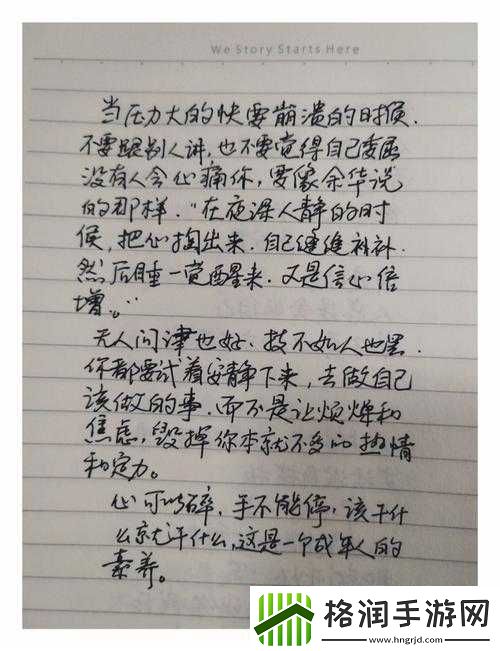 We Story Starts Here
当压力大的快要崩溃的时候.
不要跟别人讲,也不要觉得自己委屈
没有人会心痛你,要像余华说
的那样."在夜深人静的时
候,把心掏出来.自己缝缝补补.
然后睡一觉醒来.又是信心倍
增。"
无人问津也好、技不如人也罢.
你都要试着安静下来,去做自己
该做的事.而不是让烦燥和
焦虑,毁掉你本就不多的热情
和定力。
心可以碎,手不能停,该干什
么就干什么,这是一个成年人的
素养。
格润手游网
www.hngrjd.com